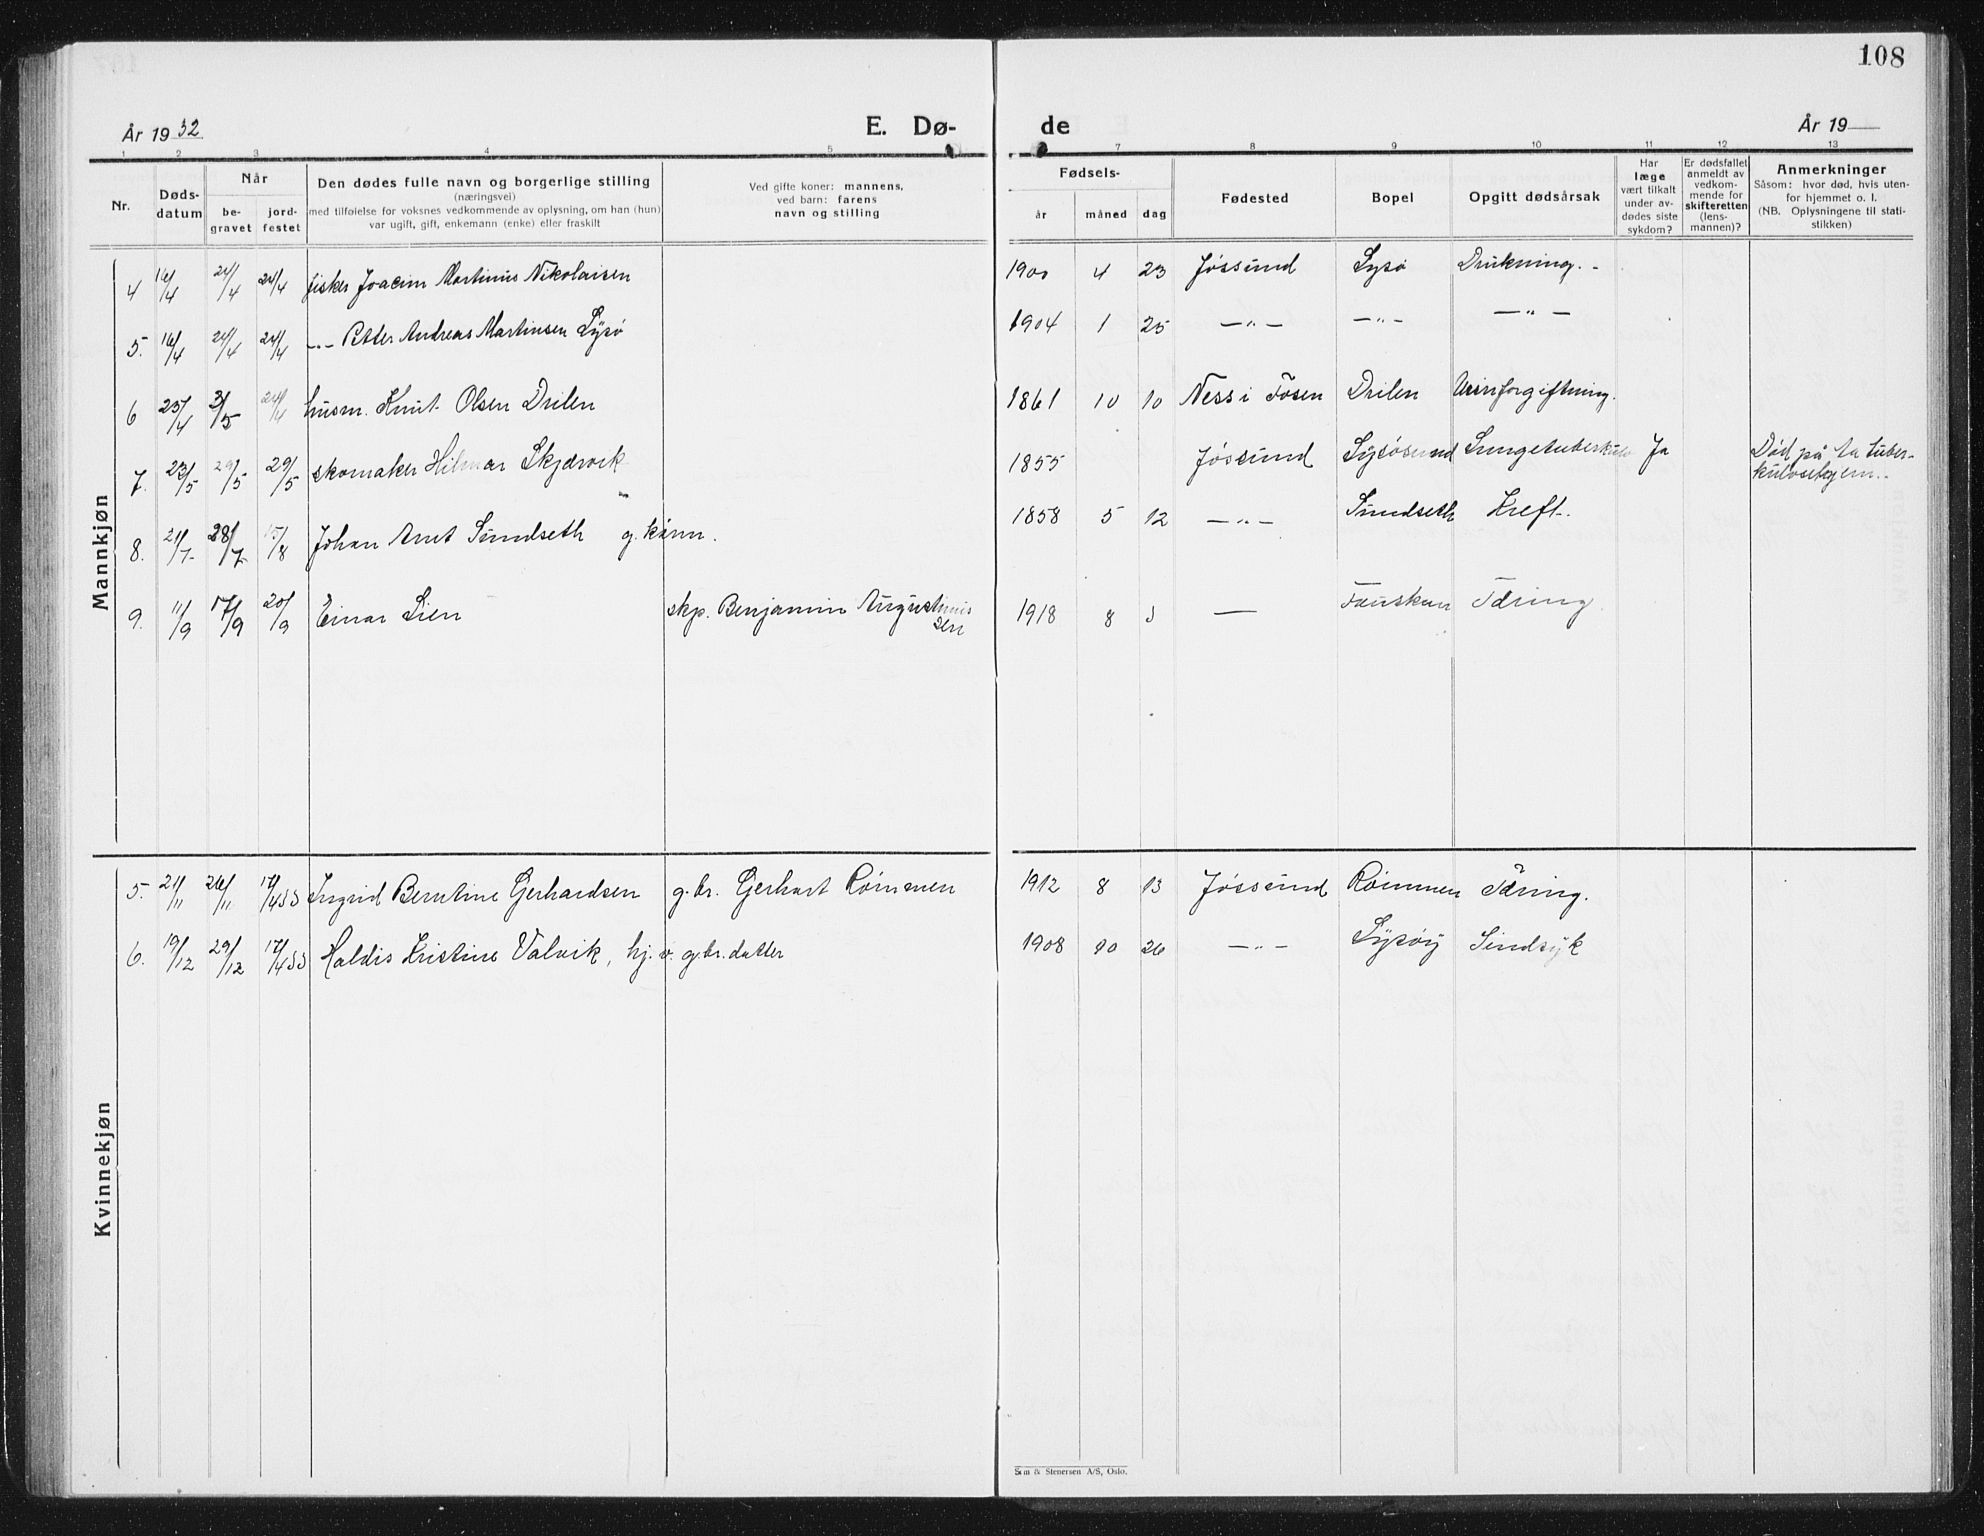 108
År 1932
E. Dø-
de
År 19
1 2 3 4 5 7 8 9 10 11 12 13
Nr.
Døds-
datum
Når
be-
gravet
jord-
festet
Den dødes fulle navn og borgerlige stilling
(næringsvei)
med tilføielse for voksnes vedkommende av oplysning, om han (hun)
var ugift, gift, enkemann (enke) eller fraskilt
Ved gifte koner: mannens,
ved barn: farens
navn og stilling
Fødsels-
år
måned
dag
Fødested
Bopel
Opgitt dødsårsak
Har
læge
vært tilkalt
under av-
dødes siste
sykdom?
Er dødsfallet
anmeldt av
vedkom-
mende for
skifteretten
(lens-
mannen)?
Anmerkninger
Såsom: hvor død, hvis uten-
for hjemmet o. l.
(NB. Oplysningene til stati-
stikken)
Mannkjøn
4 16/4 24/4 24/4 fisker Joacim Martinus Nikolaisen 1900 4 23 Jøssund Lysø Drukning. -
5. 16/4 24/4 24/4 -"- Petter Andreas Martinsen Lysø 1904 1 25 -"- -"- -"-
6 25/4 3/5 24/4 husm. Knut Olsen Drilen 1861 10 10 Ness i Fosen Drilen Urinforgiftning.
7. 23/5 29/5 29/5 skomaker Hilmar Skjærvik 1855 Jøssund Lysøsund Lungetuberkulo Ja Død på Aa tuber-
kulosehjem..
8. 21/7 28/7 15/8 Johan Arnt Sundseth g. kårm. 1858 5 12 -"- Sundseth Kreft.
9. 11/9 17/9 20/9 Einar Lien skp. Benjamin Augustinus
sen 1918 8 3 — Fauskan Tæring
Kvinnekjøn
5. 21/11 26/11 17/4 33 Ingrid Berntine Gerhardsen g.br. Gerhart Rømmen 1912 8 13 Jøssund Rømmen Tæring.
6. 19/12 29/12 17/4 33 Haldis Kristine Valvik, hj. v. g.br. datter 1908 10 26 -"- Lysøy Sindsyk
Sem & Stenersen A/S, Oslo.